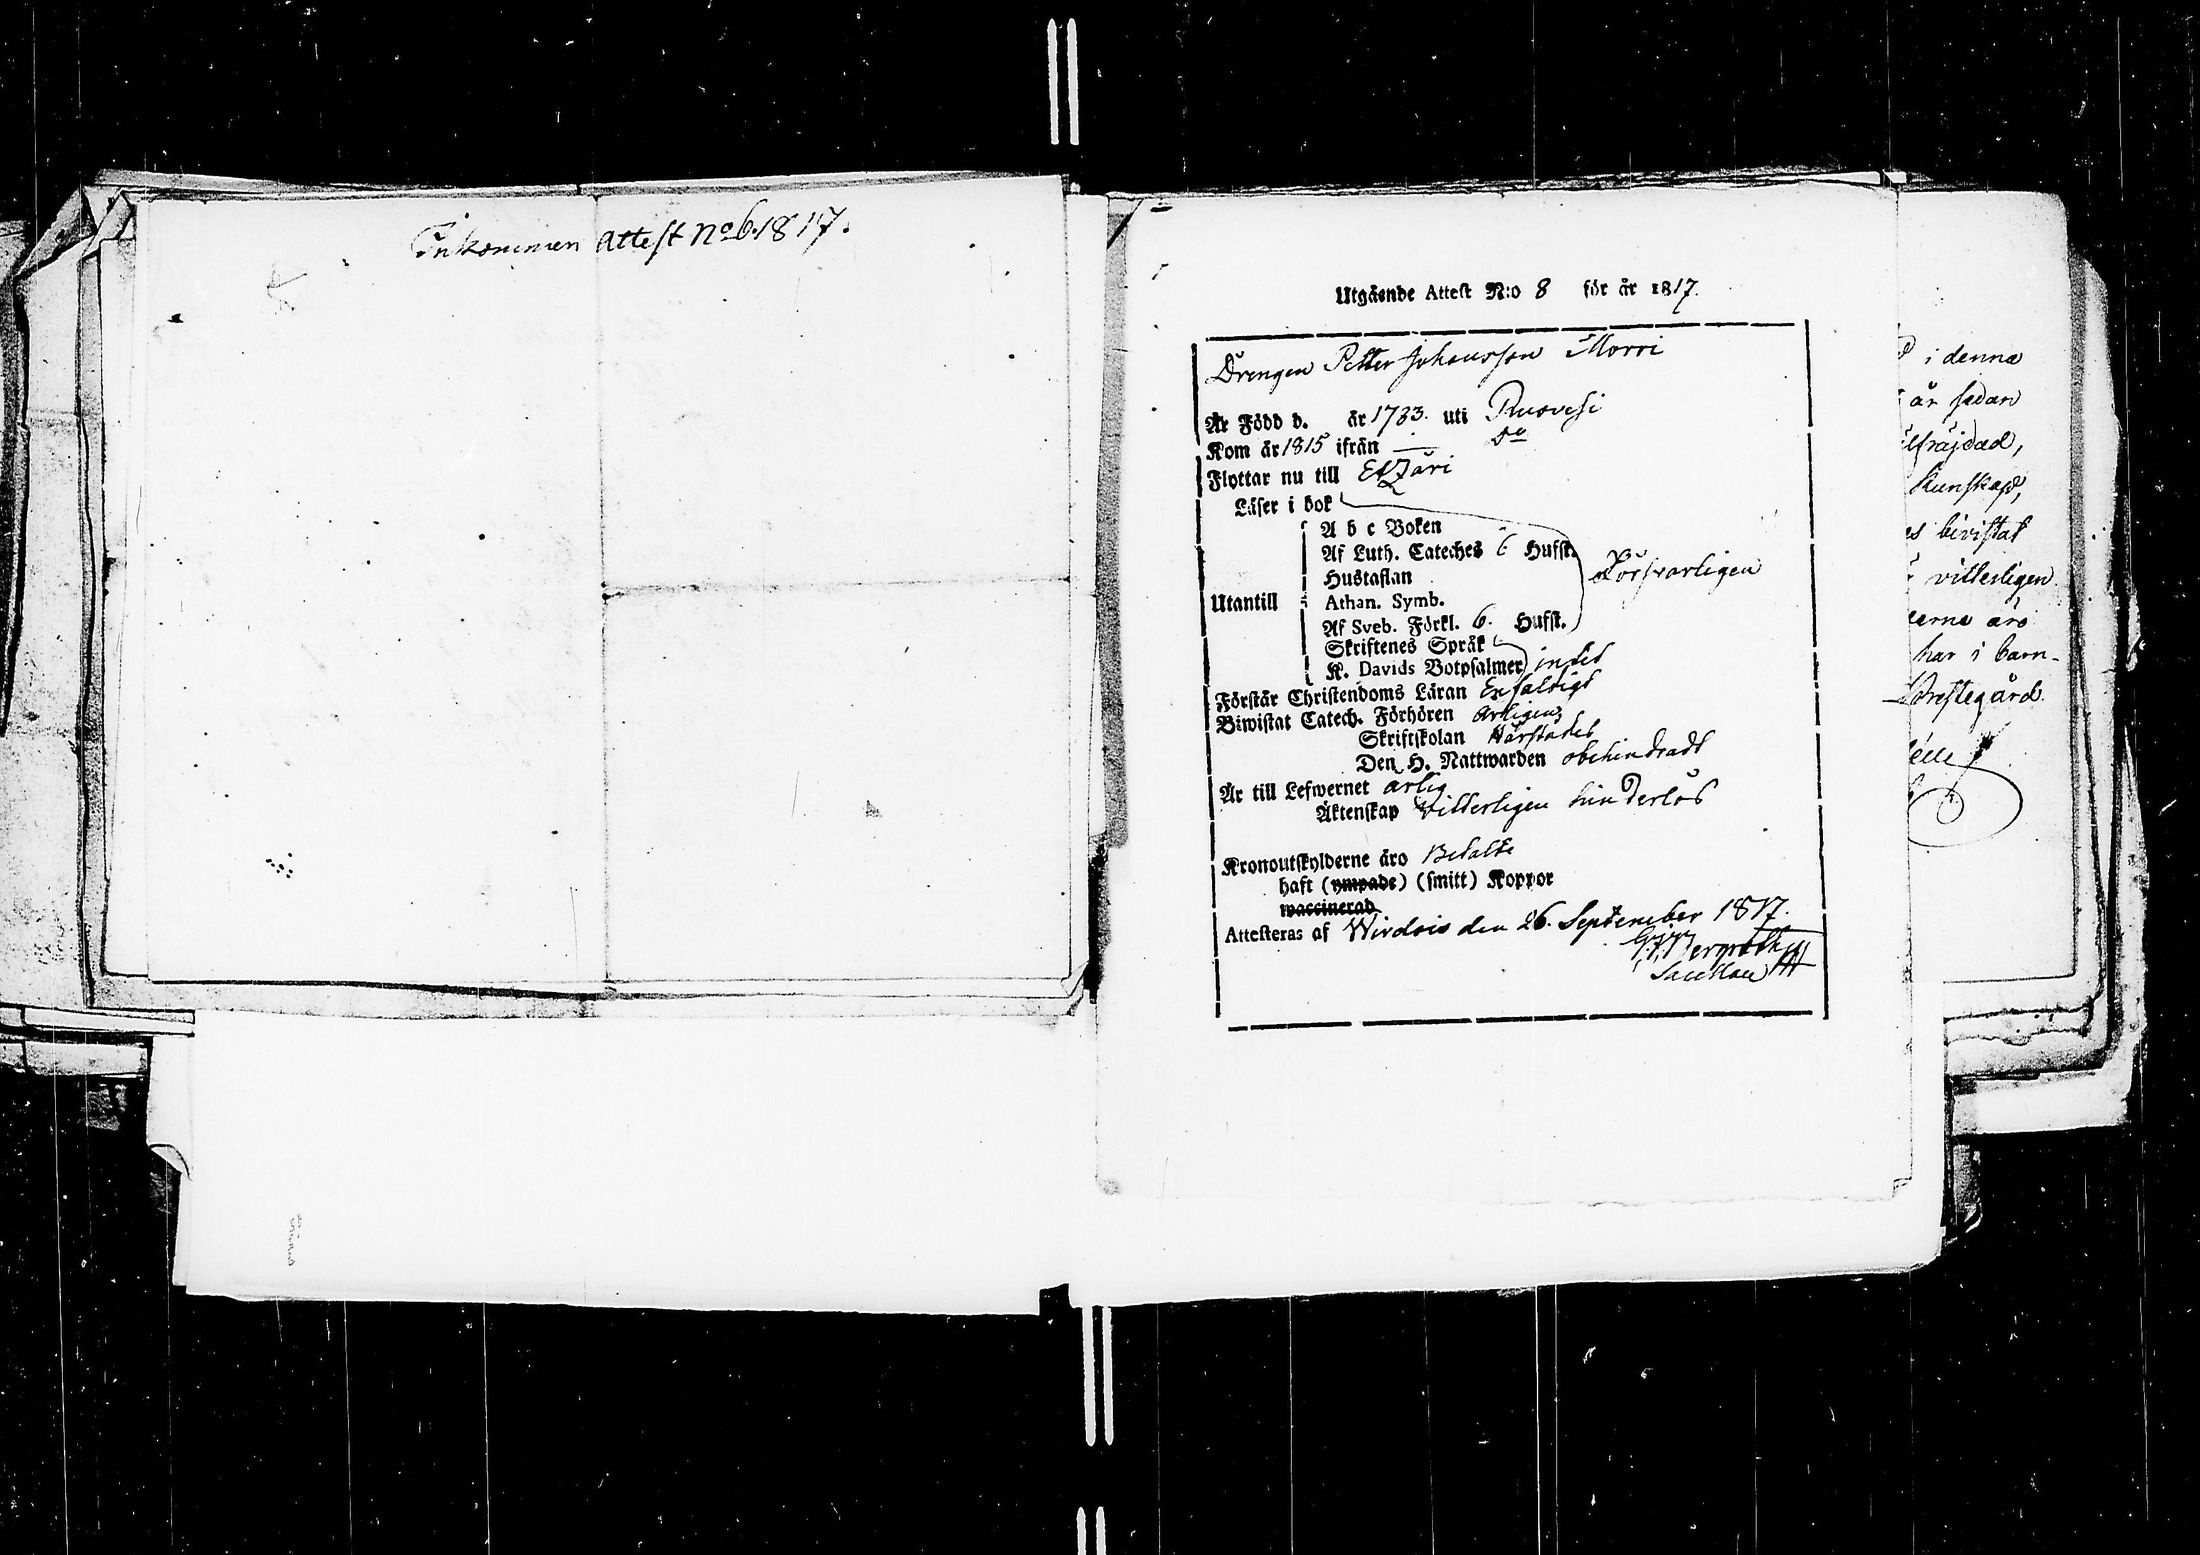 Inkommen Attest No 6. 1817.
Utgående Attest N:o 8 för år 1817.
Drengen Petter Johansson Morri
Är Född d. år 1783. uti Ruovesi
Kom år 1815 ifrån — do
Flyttar nu till Etzäri
Läser i bok
A b c Boken
Af Luth. Cateches 6 Hufst.
Hustaflan
Försvarligen
Utantill
Athan. Symb.
Af Sveb. Förkl. 6. Hufst.
Skriftenes Språk
K. Davids Botpsalmer intet
Förstår Christendoms Läran Enfaldigt
Biwistat Catech. Förhören årligen
Skriftskolan
Den H. Nattwarden obehindradt
Är till Lefwernet ärlig
Äktenskap vitterligen hinderlös
Kronoutskylderne äro Betalte
haft (ympade) (smitt) Koppor
waccinerad
Attesteras af Wirdois den 26. September 1817.
G. J. Bergroth
Sacellan
i denna
år sedan
Kunskap,
bivistat
vitterligen
äro
har i barn-
Prestegård